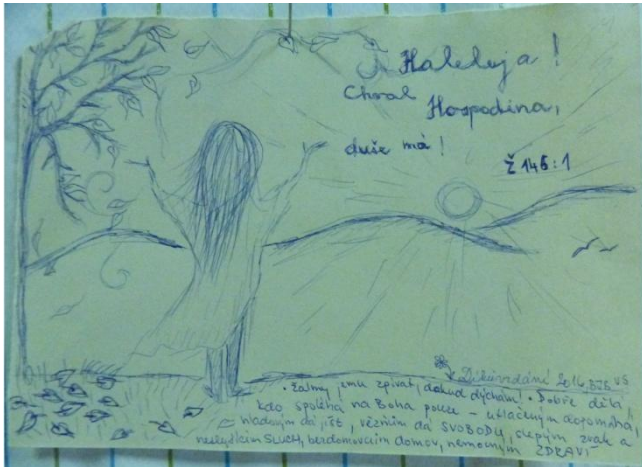 Haleluja!
Chval Hospodina,
duše má!
Ž 146:1
Díkůvzdání 2016
žalmy jemu zpívat, dokud dýchám! • Dobře dělá,
kdo spoléhá na Boha pouze – utlačeným dopomáhá,
hladovým dá jíst, vězním dá SVOBODU, slepým zrak a
neslyšícím SLUCH, bezdomovcům domov, nemocným ZDRAVÍ